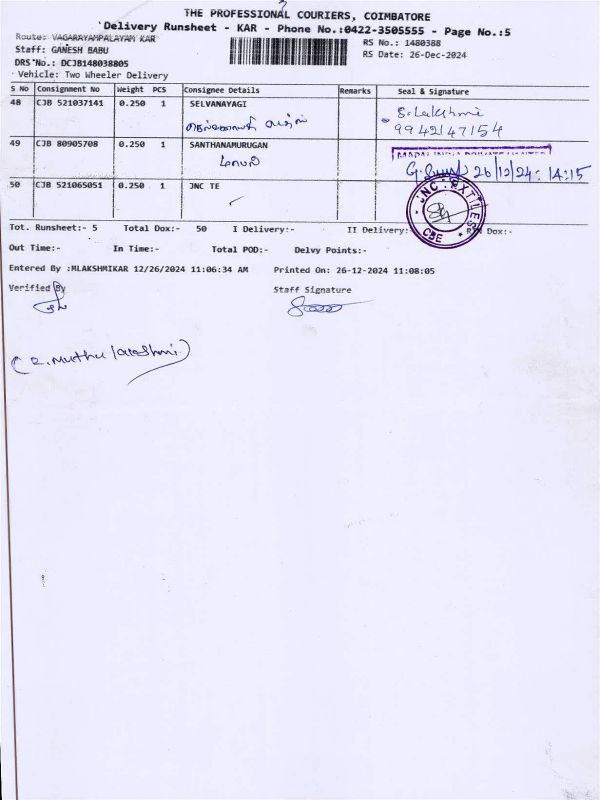 THE PROFESSIONAL COURIERS, COIMBATORE
Delivery Runsheet - KAR - Phone No.:0422-3505555 - Page No.:5
Route: VAGARAYAMPALAYAM KAR
RS No.: 1480388
Staff: GANESH BABU
RS Date: 26-Dec-2024
DRS No.: DCJB148038805
Vehicle: Two Wheeler Delivery
S No Consignment No Weight PCS Consignee Details Remarks Seal & Signature
48 CJB 521037141 0.250 1 SELVANAYAGI S. Lakshmi
9942147154
49 CJB 80905708 0.250 1 SANTHANAMURUGAN
26/12/24: 14:15
50 CJB 521065051 0.250 1 JNC TE
JNC TEXTILES
CBE
Tot. Runsheet:- 5 Total Dox:- 50 I Delivery:- II Delivery:- Dox:-
Out Time:- In Time:- Total POD:- Delvy Points:-
Entered By :MLAKSHMIKAR 12/26/2024 11:06:34 AM Printed On: 26-12-2024 11:08:05
Verified By Staff Signature